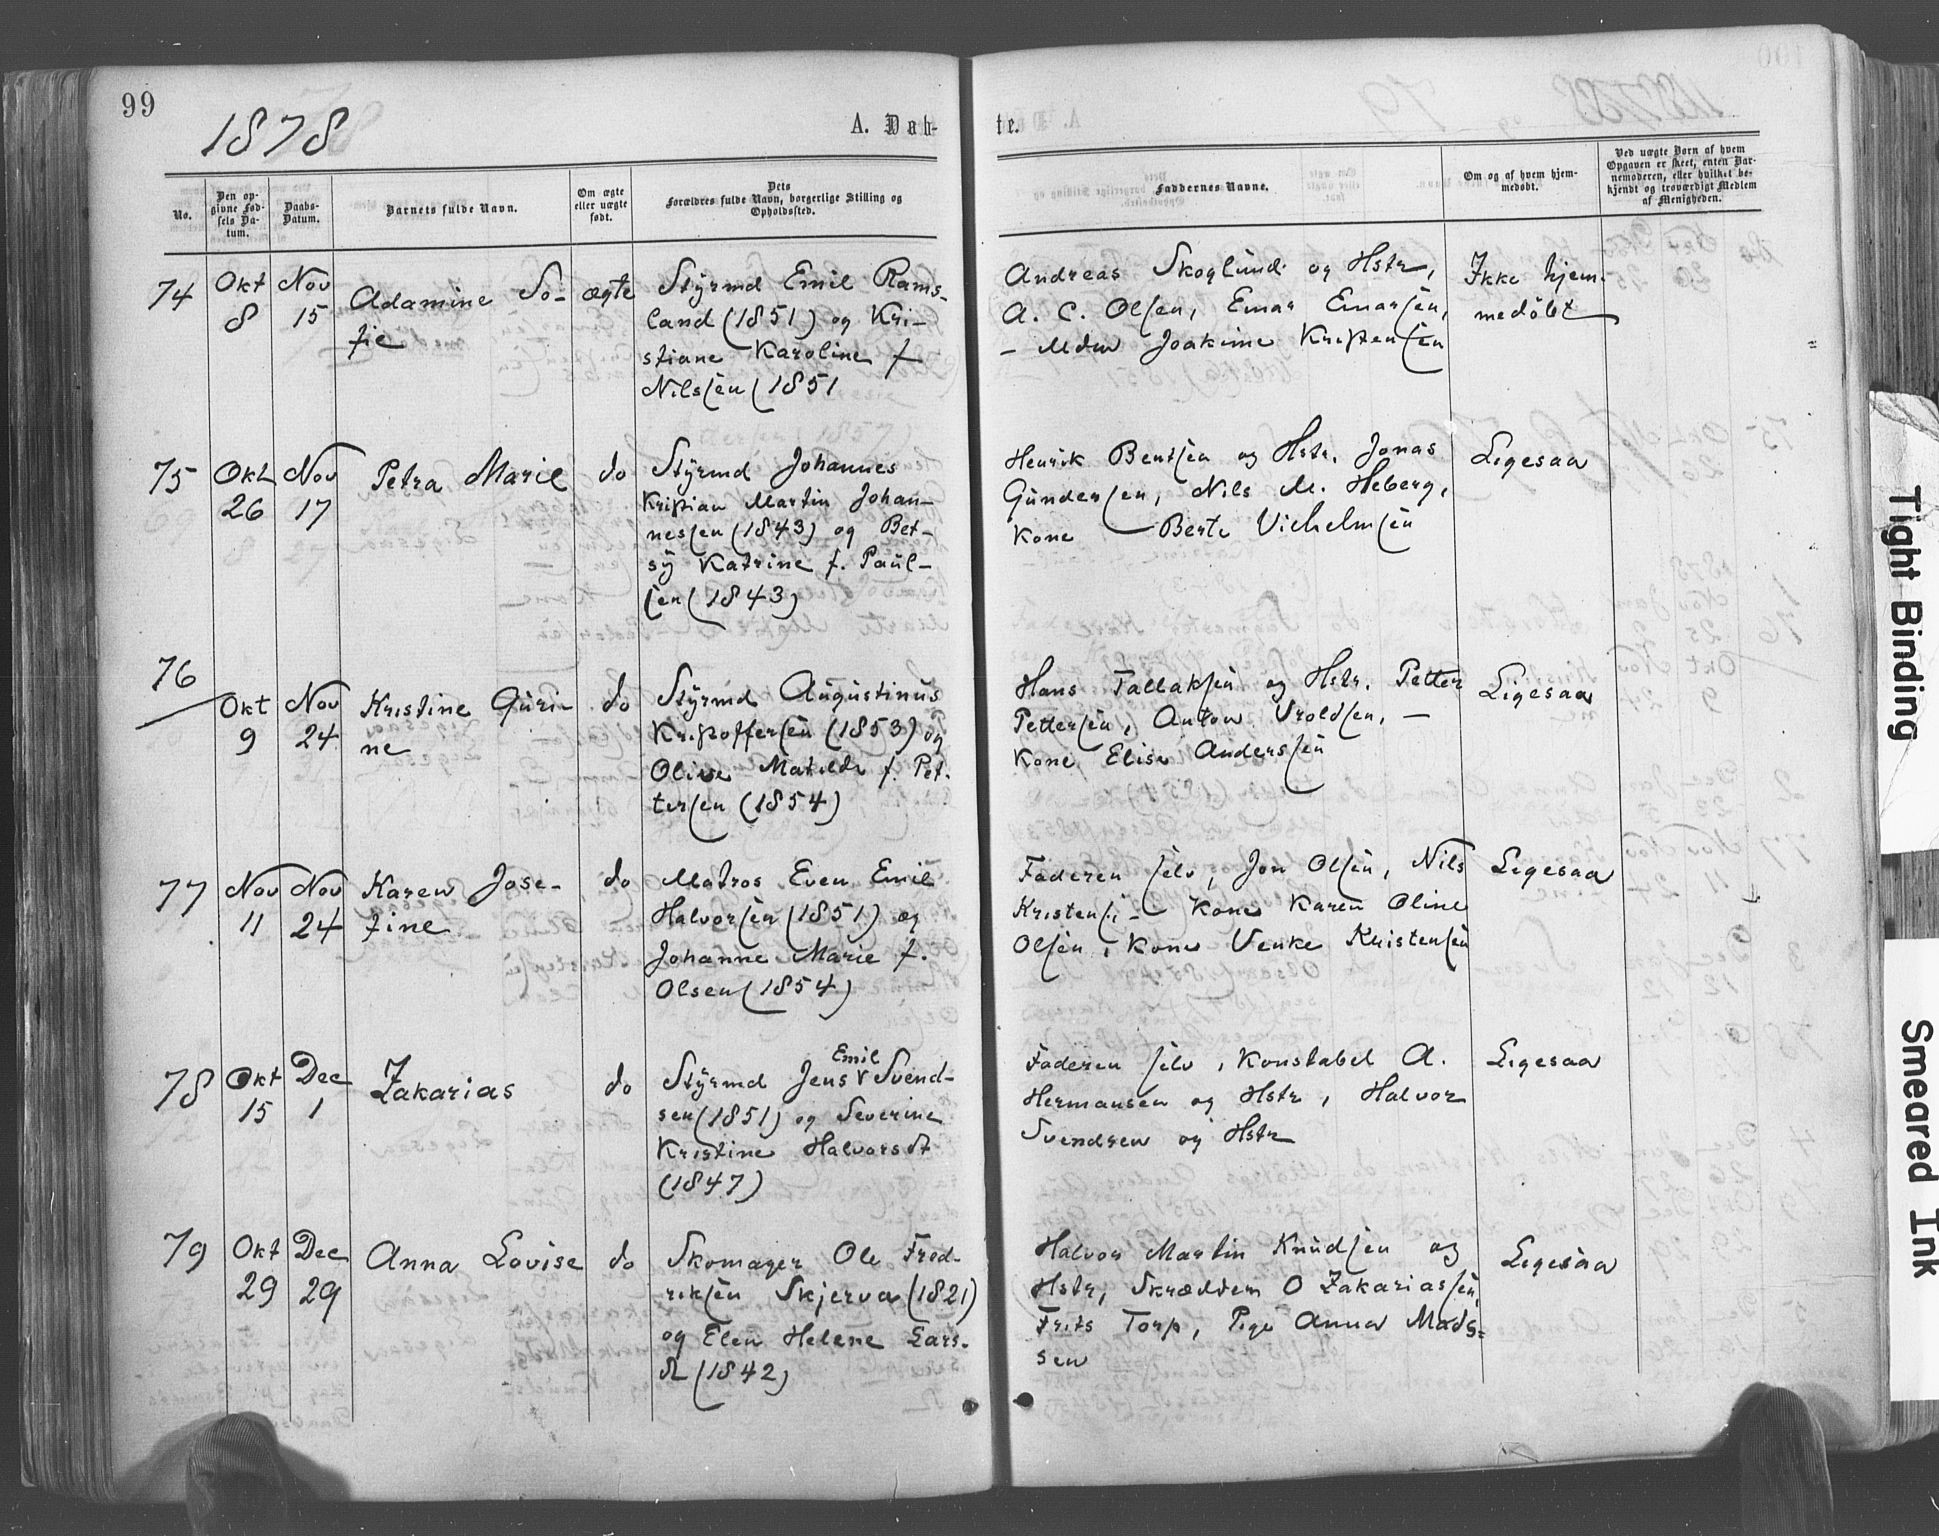 99
1878
A. Døb-
te.
No.
Den op-
givne Fød-
sels Da-
tum.
Daabs-
Datum.
Barnets fulde Navn.
Om ægte
eller uægte
født.
Dets
Forældres fulde Navn, borgerlige Stilling og
Opholdssted.
Faddernes Navne.
Om og af hvem hjem-
medøbt.
Ved uægte Børn af hvem
Opgaven er skeet, enten Bar-
nemoderen, eller hvilket be-
kjendt og troværdigt Medlem
af Menigheden.
74
Okt
8
Nov
15
Adamine So-
fie
ægte
Styrmd Emil Rams-
land (1851) og Kri-
stiane Karoline f
Nilssen (1851
Andreas Skoglund og Hstr,
A. C. Olsen, Einar Einarsen,
Joakime Kristensen
Ikke hjem-
medøbt
75
Okt
26
Nov
17
Petra Marie
do
Styrmd Johannes
Kristian Martin Johan-
nessen (1843) og Bet-
sy Katrine f. Paul-
sen (1843)
Henrik Bentsen og Hstr. Jonas
Gundersen, Nils M. Heberg,
Kone Berte Vilhelmsen
Ligesaa
76
Okt
9
Nov
24
Kristine Guri-
ne
do
Styrmd Augustinus
Kristoffersen (1853) og
Olive Matilde f. Pet-
tersen (1854)
Hans Tallaksen og Hstr. Petter
Pettersen, Anton Vroldsen, —
Kone Elise Anderssen
Ligesaa
77
Nov
11
Nov
24
Karen Jose-
fine
do
Matros Even Emil
Halvorsen (1851) og
Johanne Marie f.
Olsen (1854)
Faderen selv, Jon Olsen, Nils
Kristensen Kone Karen Oline
Olsen, Kone Venke Kristensen
Ligesaa
78
Okt
15
Dec
1
Zakarias
do
Emil
Styrmd Jens V Svend-
sen (1851) og Severine
Kristine Halvorsdt
(1847)
Faderen selv, Konstabel A.
Hermansen og Hstr, Halvor
Svendsen og Hstr
Ligesaa
79
Okt
29
Dec
29
Anna Lovise
do
Skomager Ole Fred-
riksen Skjerva (1821)
og Elen Helene Lars-
dt (1842)
Halvor Martin Knudsen og
Hstr, Skrædderm O Zakariassen,
Frits Torp, Pige Anna Mads-
sen
Ligesaa
Tight Binding
Smeared Ink